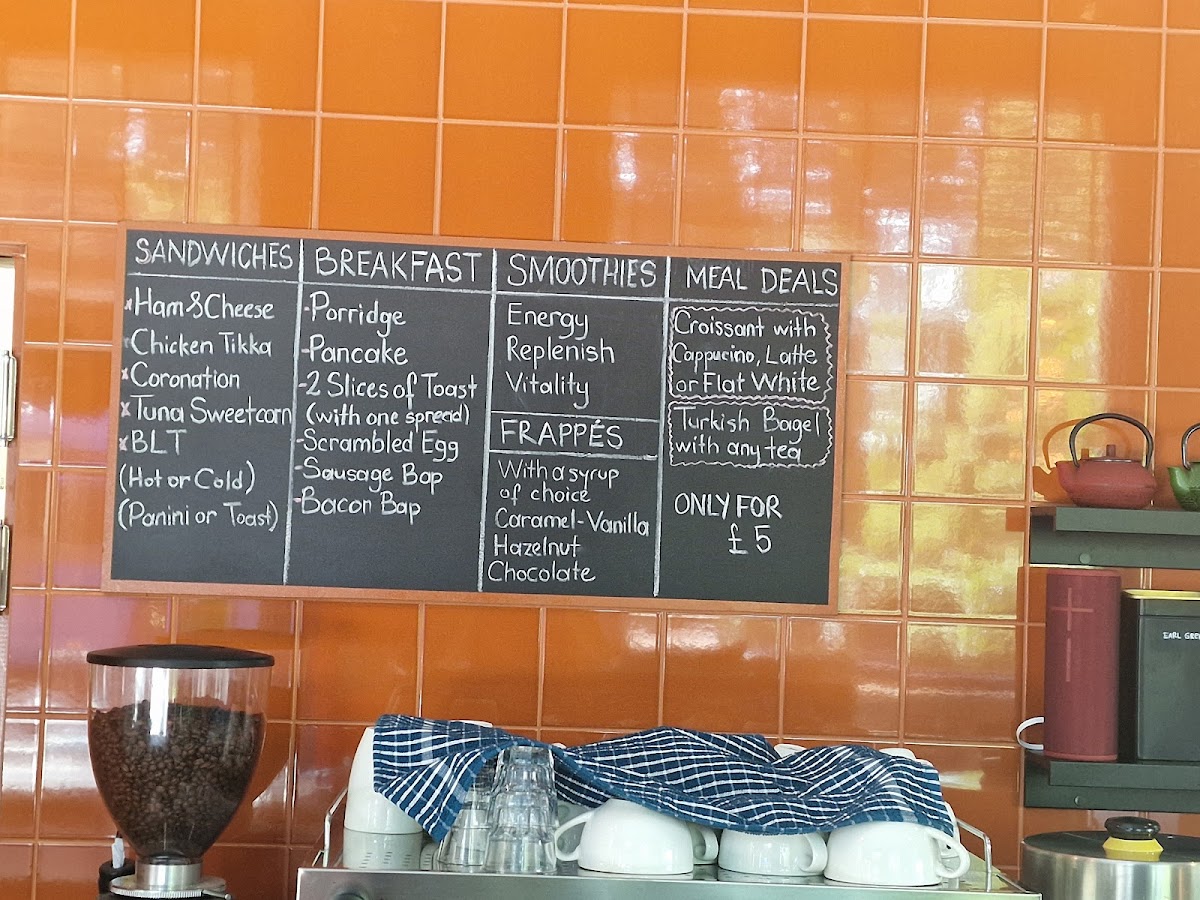 SANDWICHES
*Ham & Cheese
*Chicken Tikka
*Coronation
*Tuna Sweetcorn
*BLT
(Hot or Cold)
(Panini or Toast)
BREAKFAST
-Porridge
-Pancake
-2 Slices of Toast
(with one spread)
-Scrambled Egg
-Sausage Bap
-Bacon Bap
SMOOTHIES
Energy
Replenish
Vitality
FRAPPÉS
With a syrup
of choice
Caramel-Vanilla
Hazelnut
Chocolate
MEAL DEALS
Croissant with
Cappucino, Latte
or Flat White
Turkish Bagel
with any tea
ONLY FOR
£5
EARL